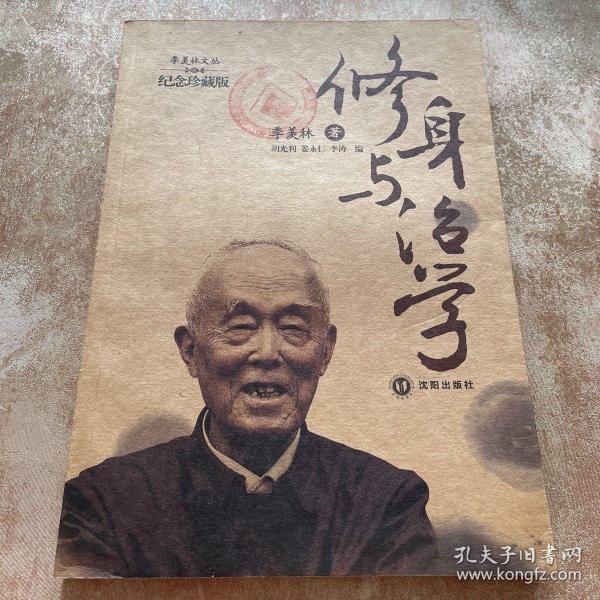 季羡林文丛
纪念珍藏版
修身
与治学
季羡林 著
胡光利 姜永仁 李涛 编
沈阳出版社
孔夫子旧书网
www.kongfz.com